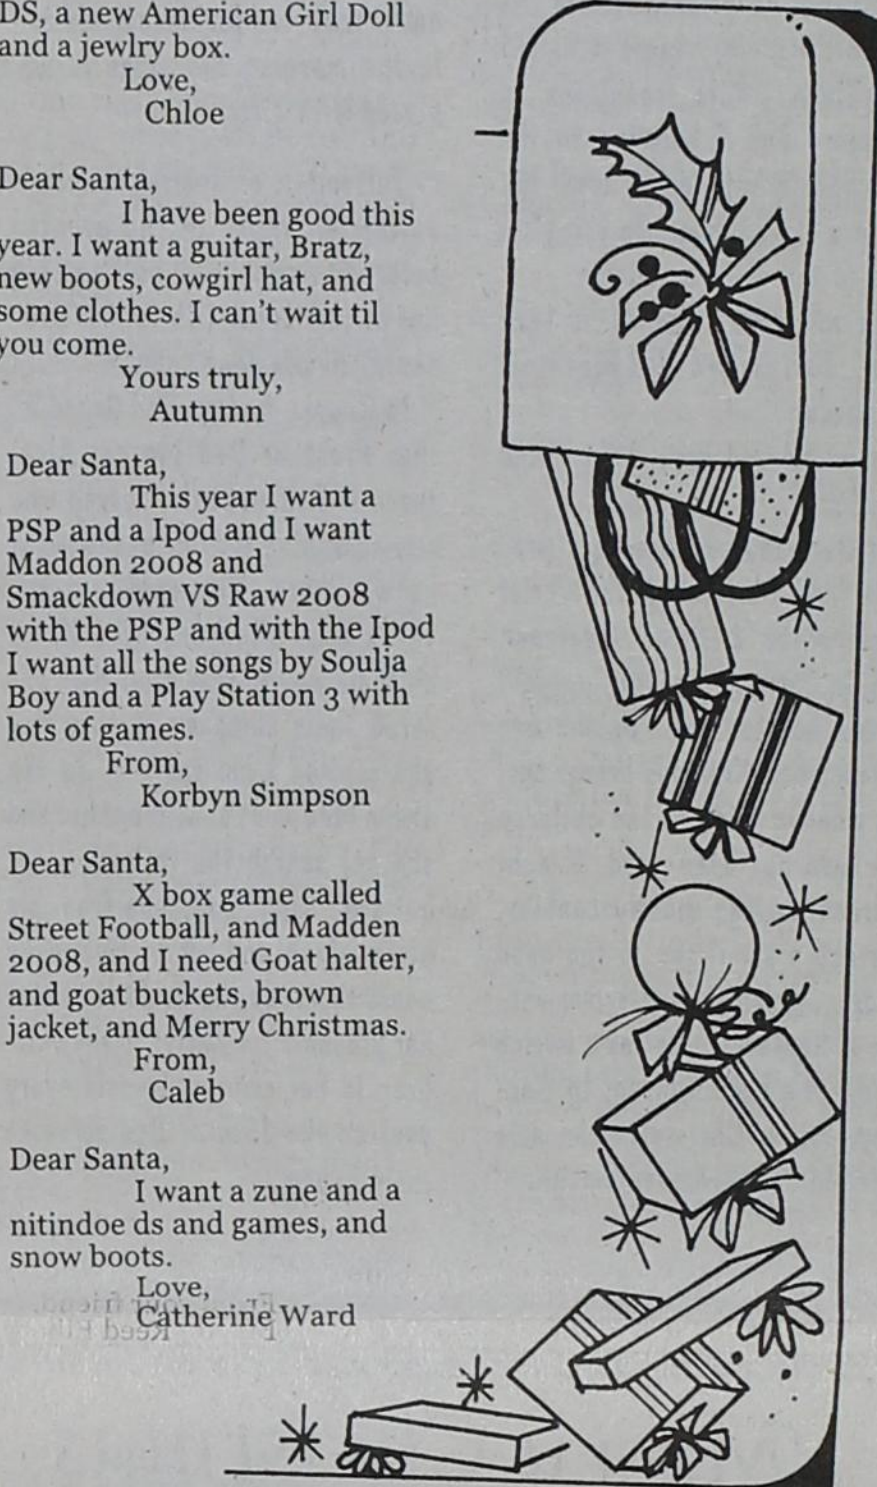 DS, a new American Girl Doll
and a jewlry box.
Love,
Chloe
Dear Santa,
I have been good this
year. I want a guitar, Bratz,
new boots, cowgirl hat, and
some clothes. I can't wait til
you come.
Yours truly,
Autumn
Dear Santa,
This year I want a
PSP and a Ipod and I want
Maddon 2008 and
Smackdown VS Raw 2008
with the PSP and with the Ipod
I want all the songs by Soulja
Boy and a Play Station 3 with
lots of games.
From,
Korbyn Simpson
Dear Santa,
X box game called
Street Football, and Madden
2008, and I need Goat halter,
and goat buckets, brown
jacket, and Merry Christmas.
From,
Caleb
Dear Santa,
I want a zune and a
nitindoe ds and games, and
snow boots.
Love,
Catherine Ward